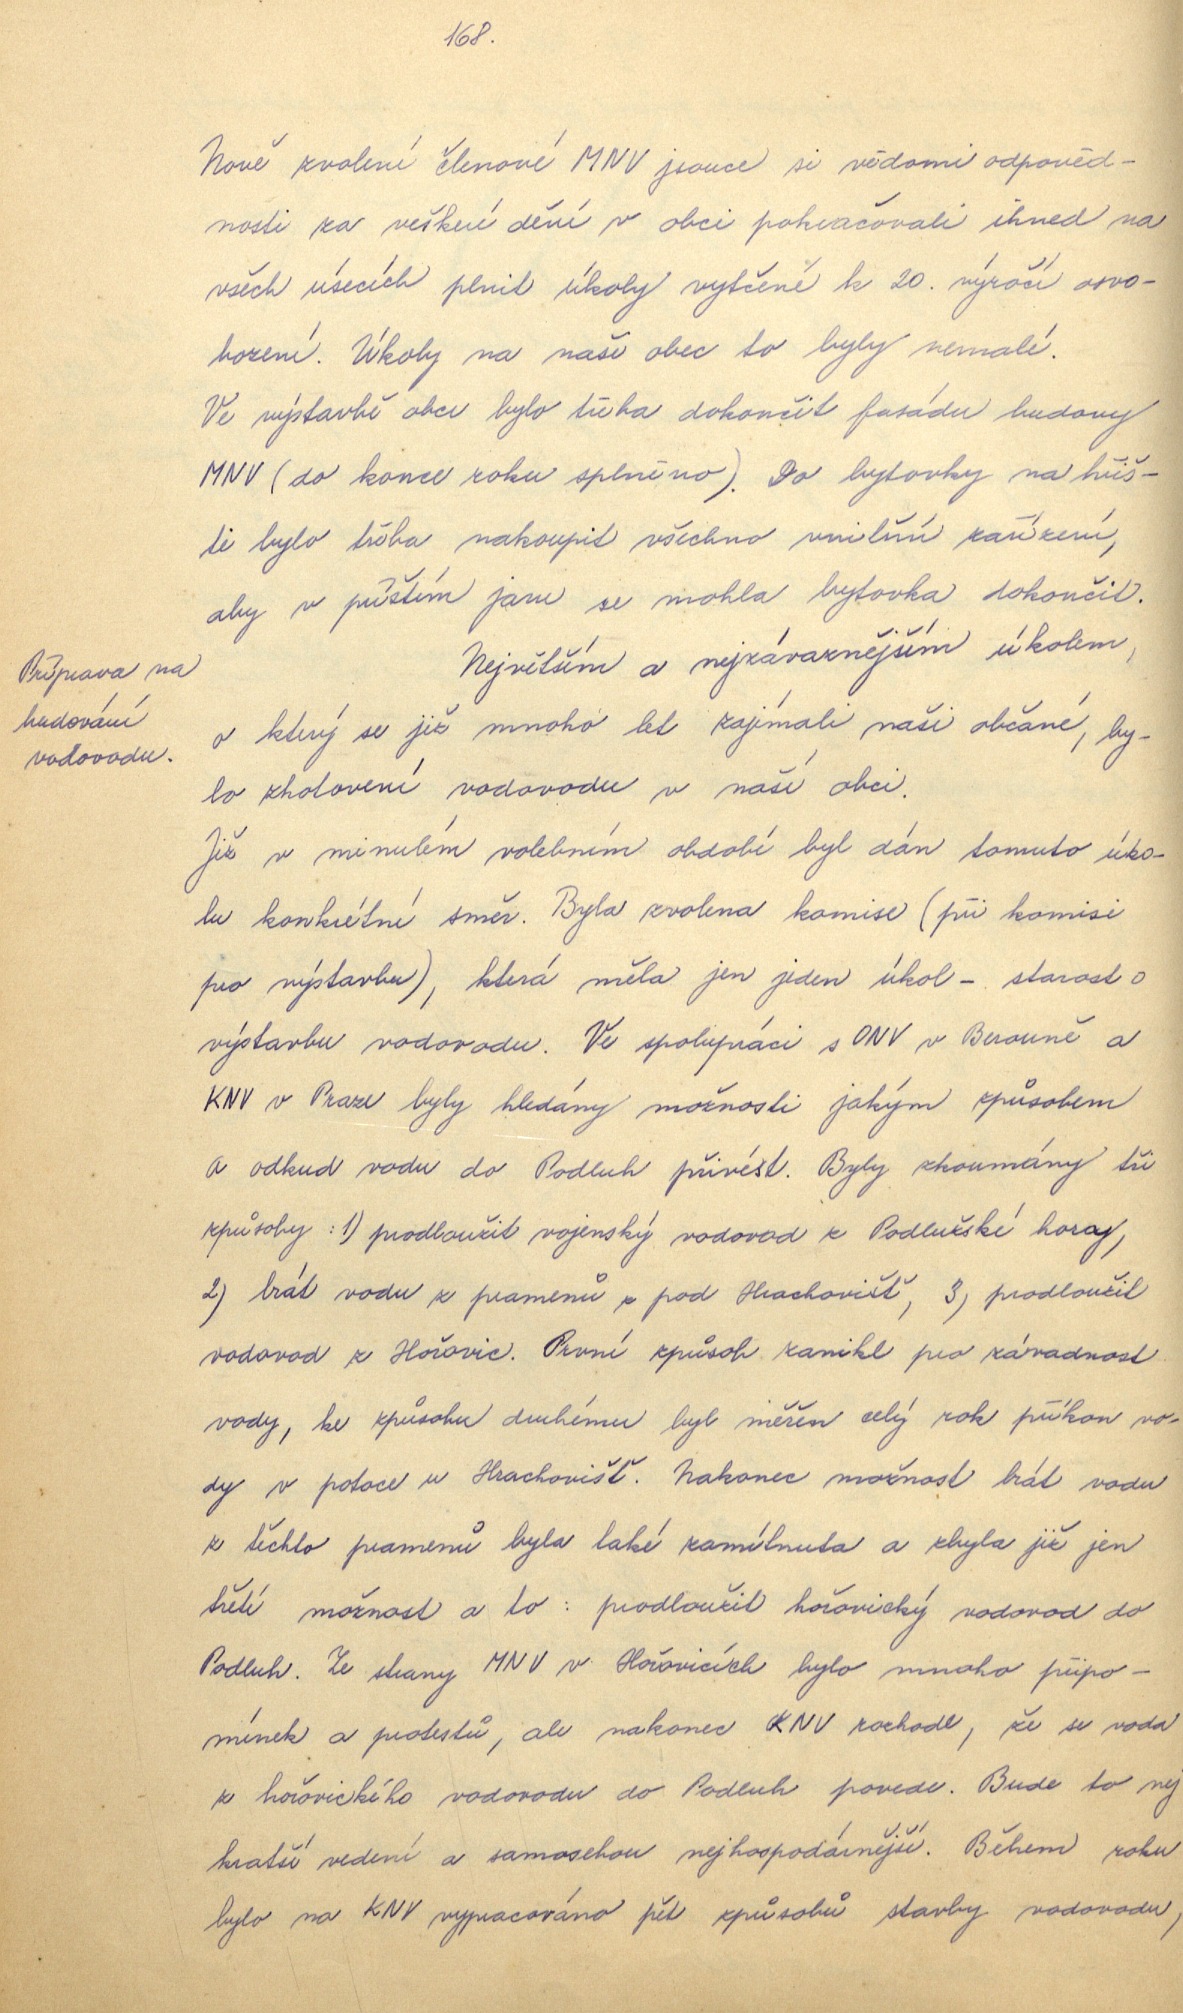 168.
Nově zvolení členové MNV jsouce si vědomi odpověd-
nosti za veškeré dění v obci pokračovali ihned na
všech úsecích plnit úkoly vytčené k 20. výročí osvo-
bození. Úkoly na naši obec to byly nemalé.
Ve výstavbě obce bylo třeba dokončit fasádu budovy
MNV (do konce roku splněno). Do bytovky na hřiš-
ti bylo třeba nakoupit všechno vnitřní zařízení,
aby v příštím jaru se mohla bytovka dokončit.
Příprava na
budování
vodovodu.
Největším a nejzávaznějším úkolem,
o který se již mnoho let zajímali naši občané, by-
lo zhotovení vodovodu v naší obci.
Již v minulém volebním období byl dán tomuto úko-
lu konkrétní směr. Byla zvolena komise (při komisi
pro výstavbu), která měla jen jeden úkol - starost o
výstavbu vodovodu. Ve spolupráci s ONV v Berouně a
KNV v Praze byly hledány možnosti jakým způsobem
a odkud vodu do Podluh přivést. Byly zkoumány tři
způsoby : 1) prodloužit vojenský vodovod z Podlužské hory,
2) brát vodu z pramenů pod Hrachovišť, 3) prodloužit
vodovod z Hořovic. První způsob zanikl pro závadnost
vody, ke způsobu druhému byl měřen celý rok příkon vo-
dy v potoce u Hrachovišť. Nakonec možnost brát vodu
z těchto pramenů byla také zamítnuta a zbyla již jen
třetí možnost a to : prodloužit hořovický vodovod do
Podluh. Ze strany MNV v Hořovicích bylo mnoho připo-
mínek a protestů, ale nakonec KNV rozhodl, že se voda
z hořovického vodovodu do Podluh povede. Bude to nej
kratší vedení a samosebou nejhospodárnější. Během roku
bylo na KNV vypracováno pět způsobů stavby vodovodu,